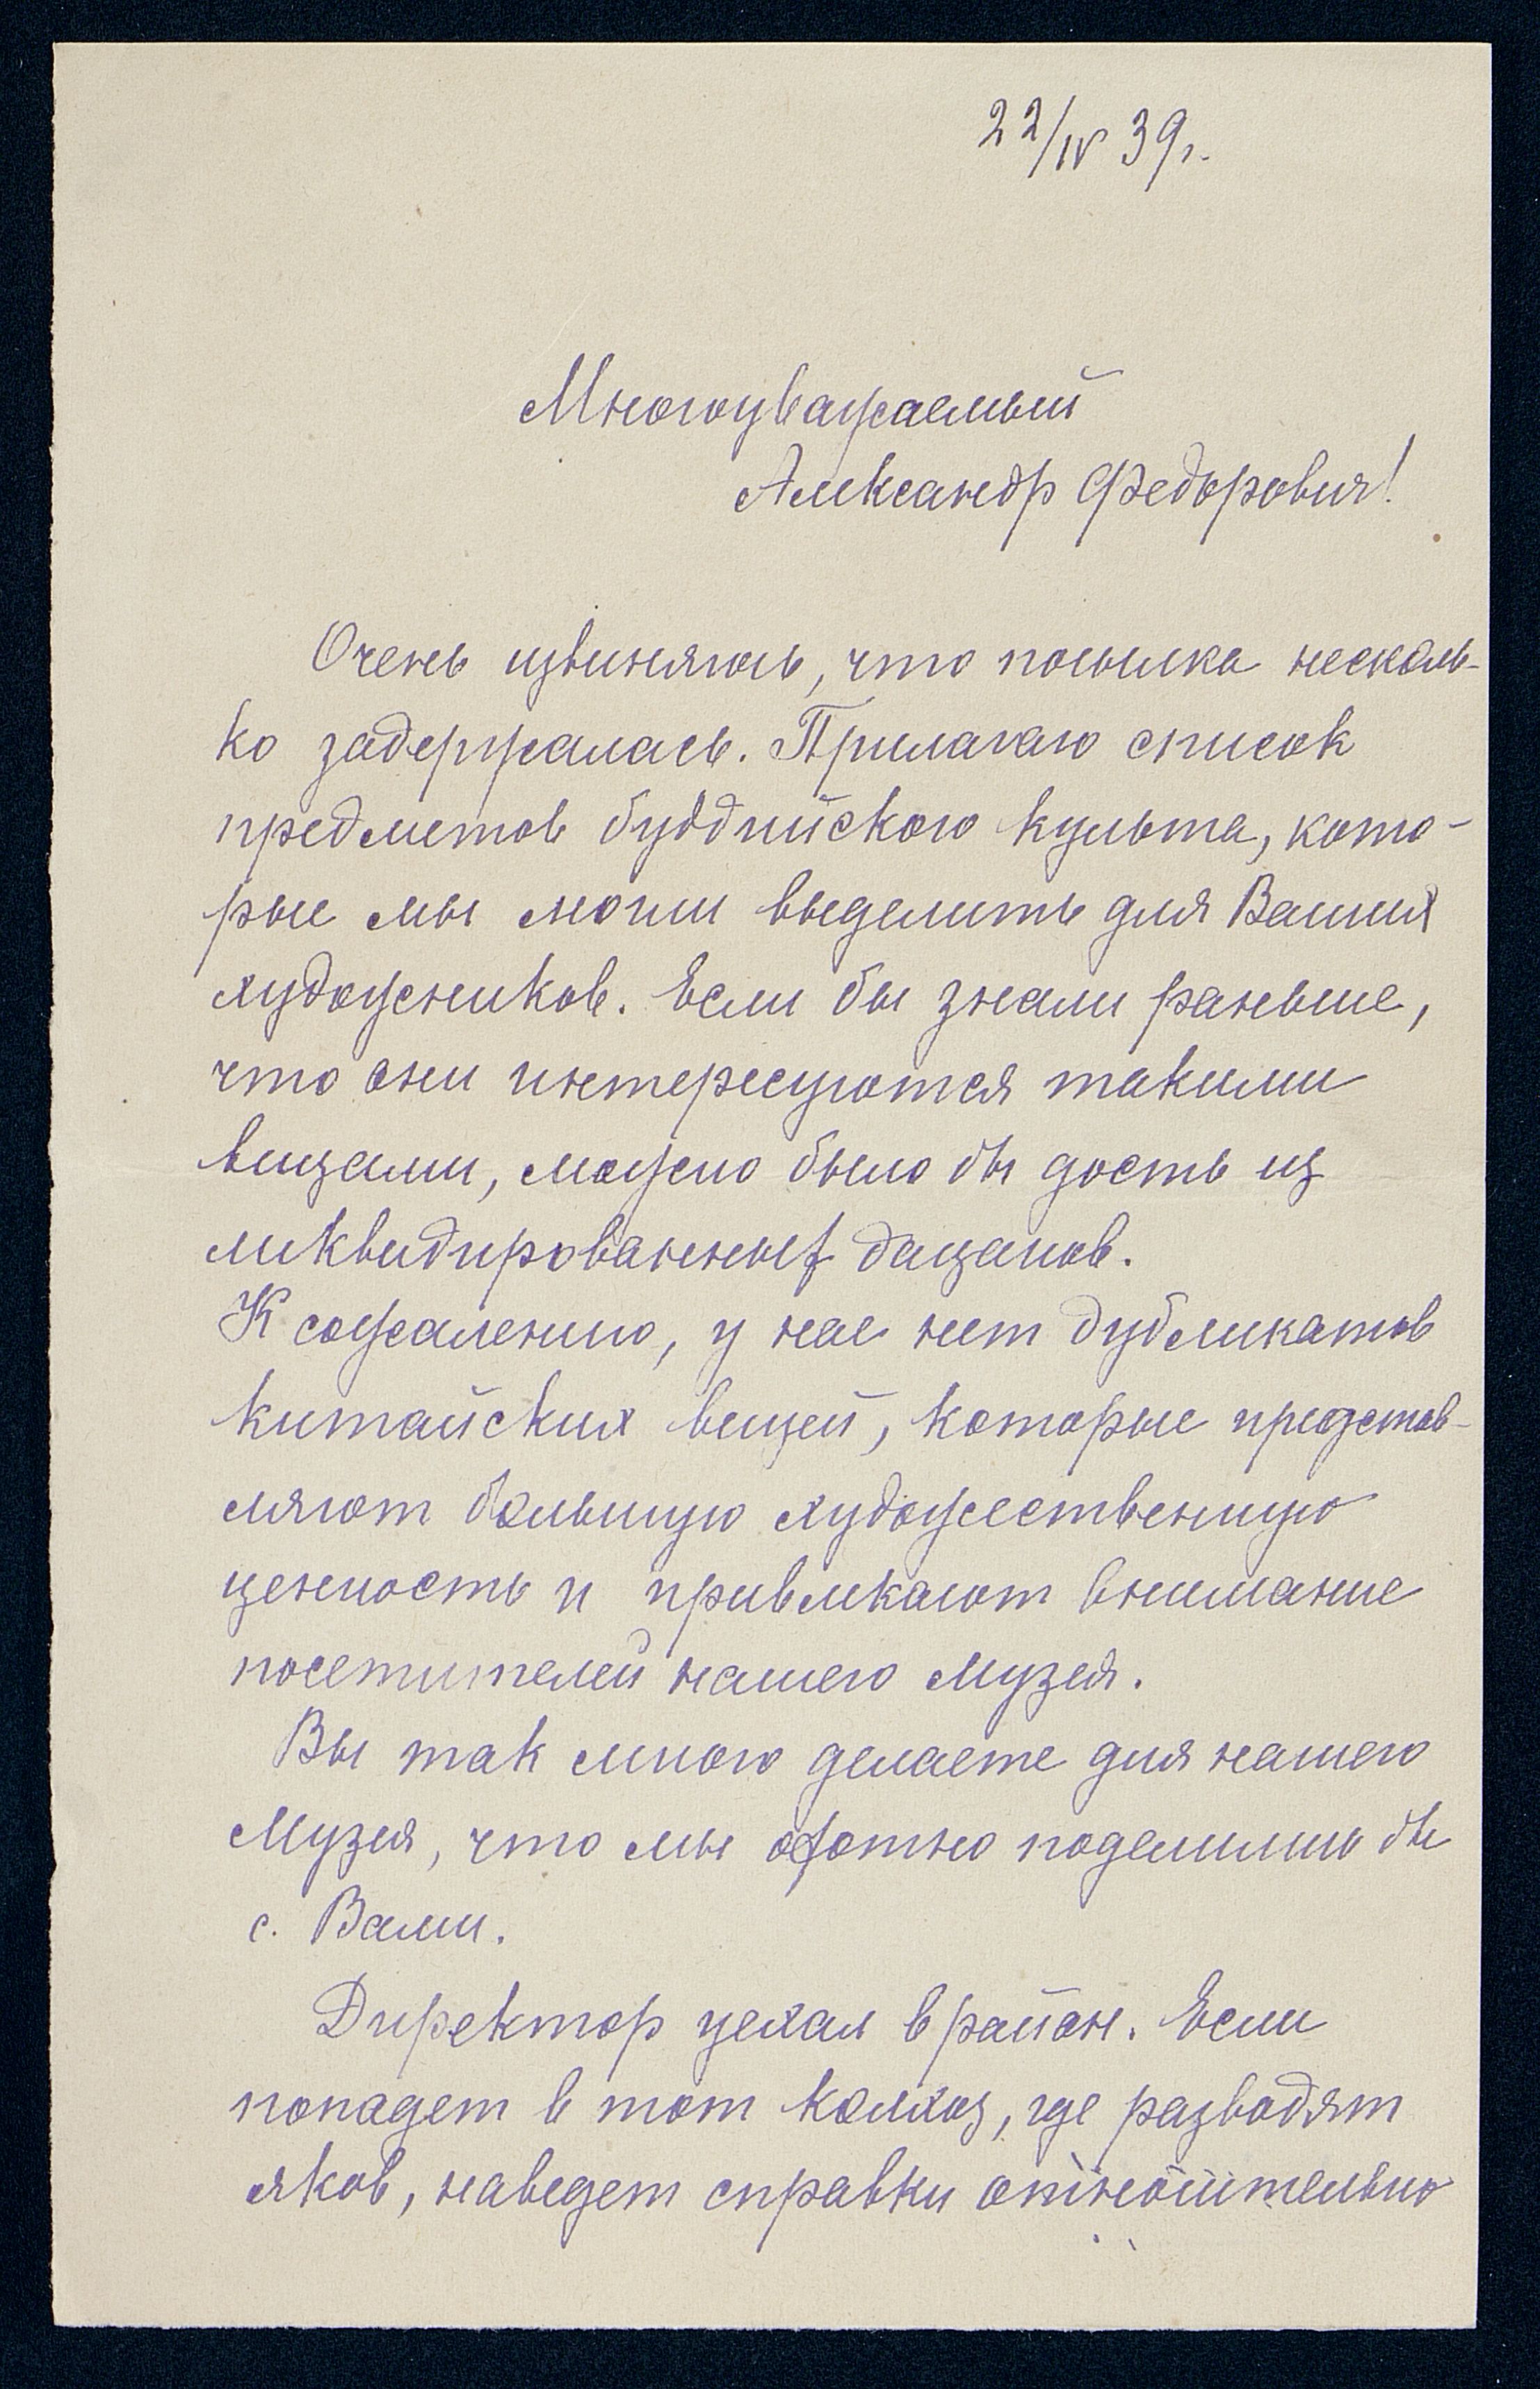 22/IV 39г.
Многоуважаемый
Александр Федорович!
Очень извиняюсь, что посылка несколь-
ко задержалась. Прилагаю список
предметов буддийского культа, кото-
рые мы могли выделить для Ваших
художников. Если бы знали раньше,
что они интересуются такими
вещами, можно было бы дость из
ликвидированных дацанов.
К сожалению, у нас нет дубликатов
китайских вещей, которые представ-
ляют большую художественную
ценность и привлекают внимание
посетителей нашего музея.
Вы так много делаете для нашего
Музея, что мы охотно поделились бы
с. Вами.
Директор уехал в район. Если
попадет в тот колхоз, где разводят
яков, наведет справки относительно